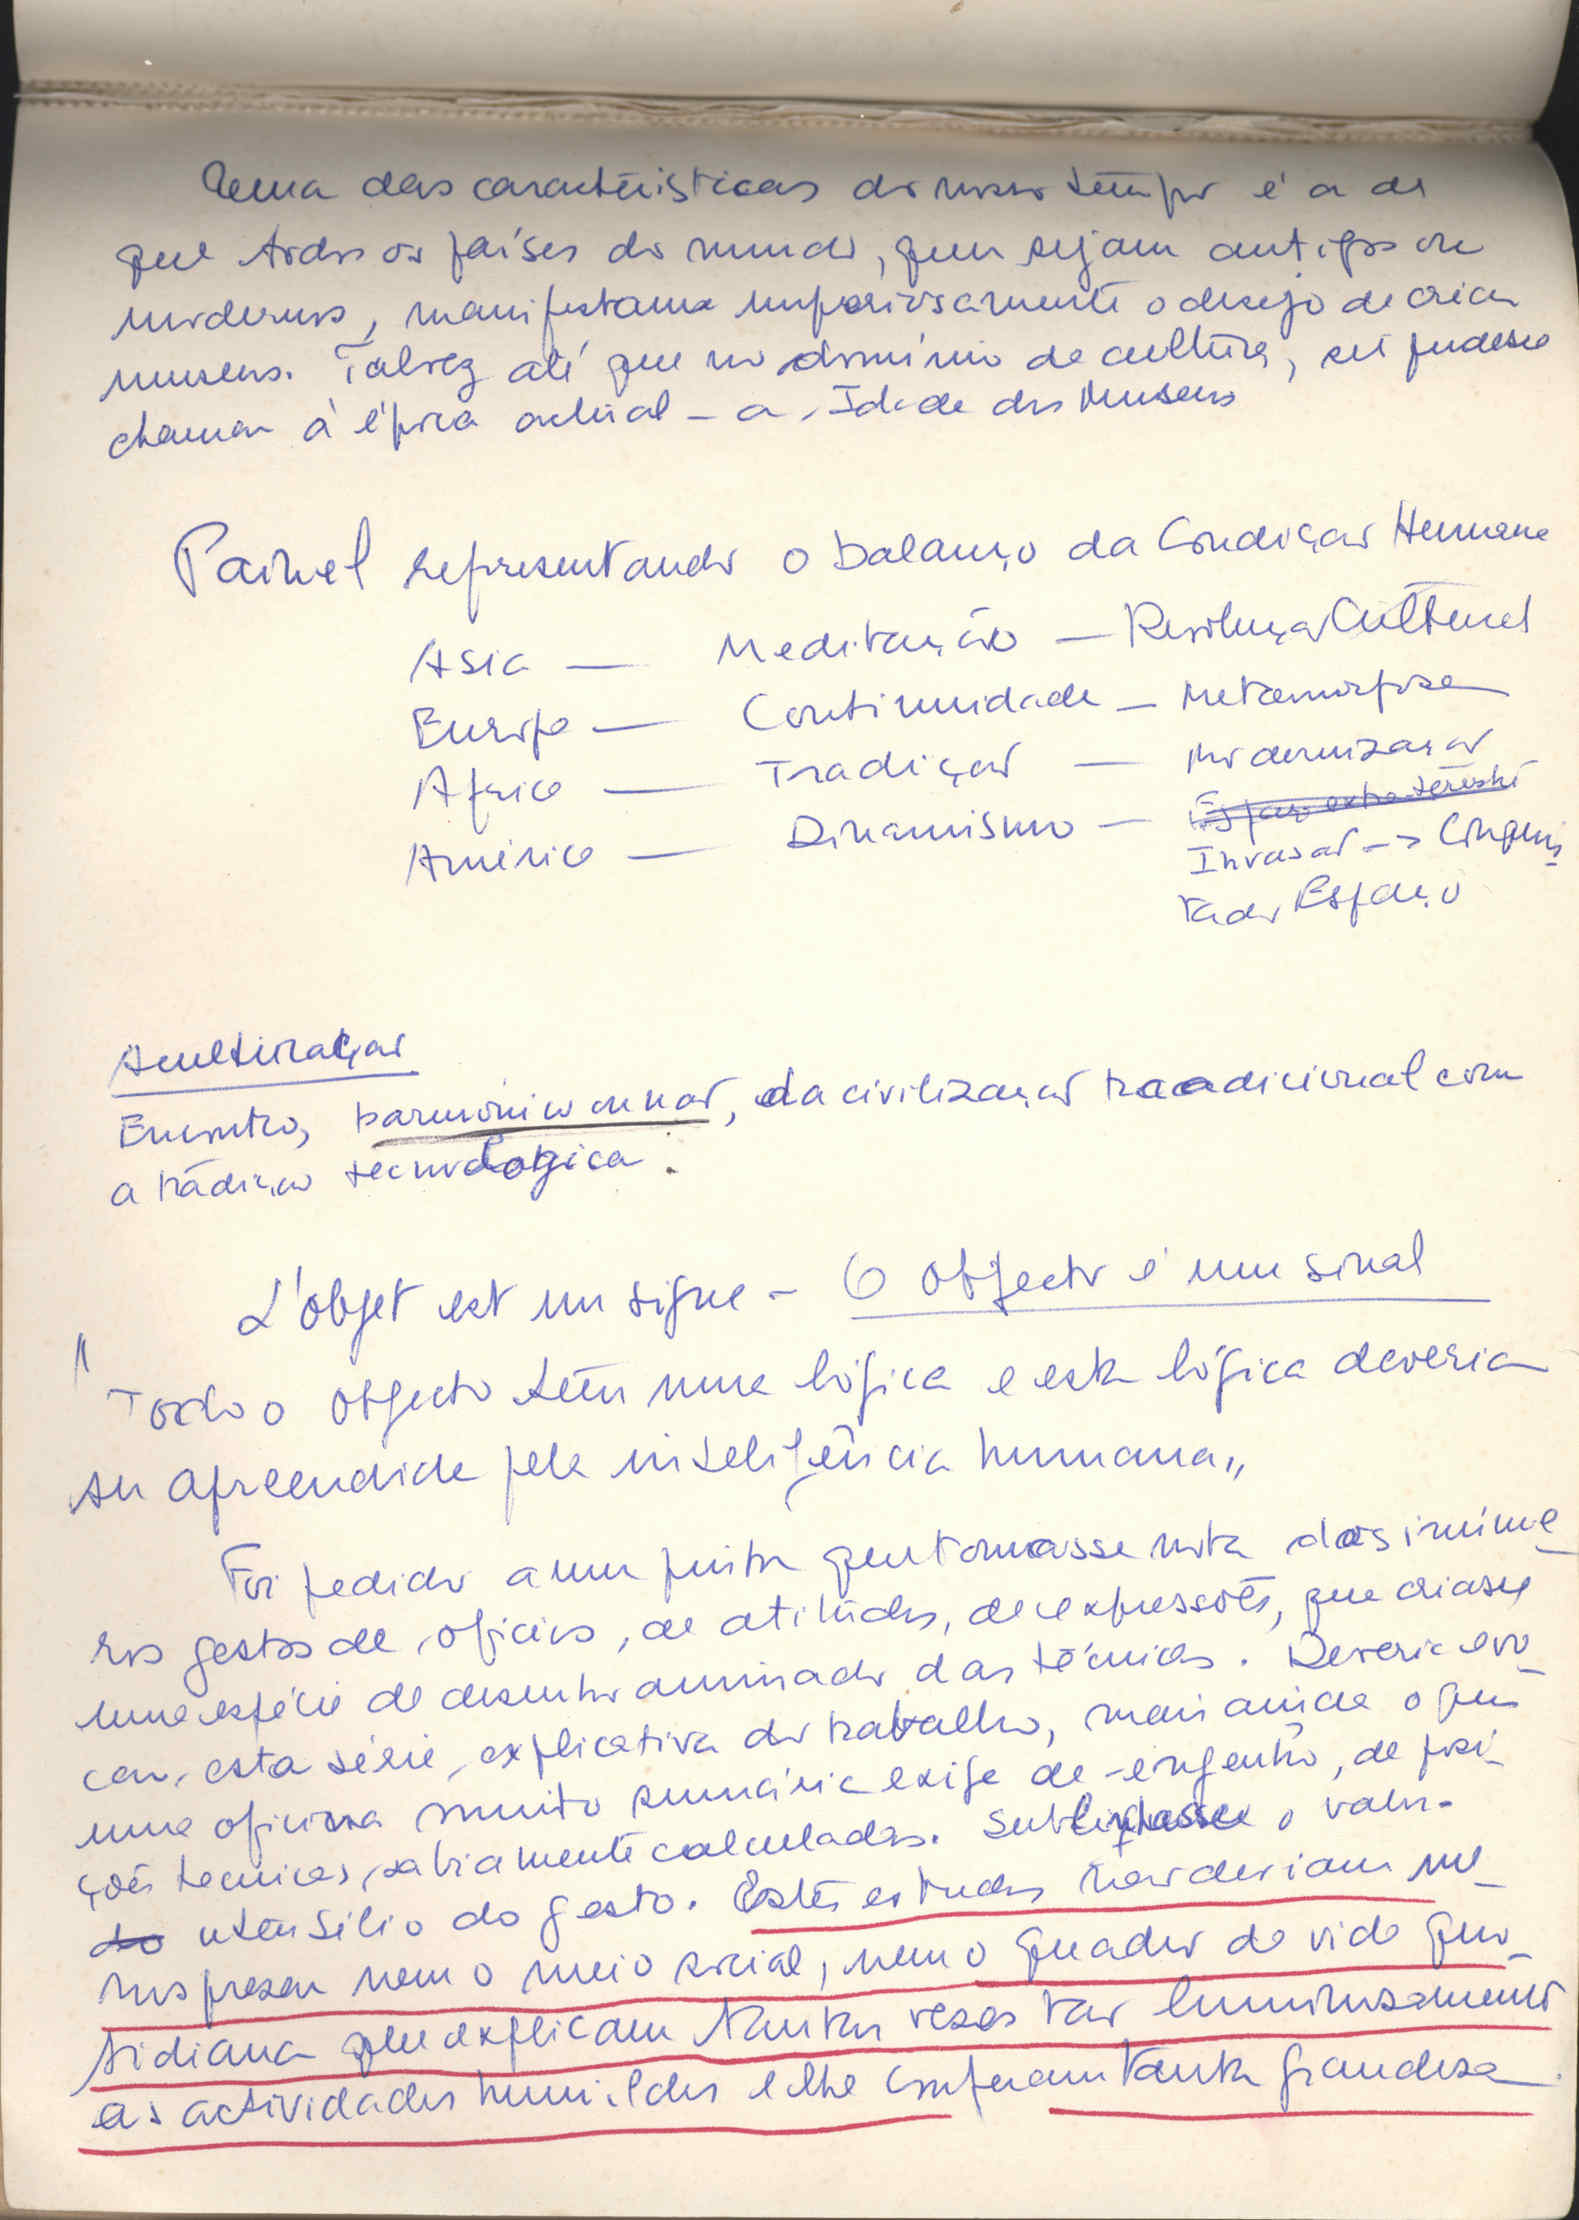 Uma das características do nosso tempo é a de
que todos os países do mundo, quer sejam antigos ou
modernos, manifestam imperiosamente o desejo de criar
museus. Talvez até que no domínio da cultura, se pudesse
chamar à época actual – a Idade dos Museus
Painel representando o balanço da Condição Humana
Asia — Meditação — Revolução Cultural
Europa — Continuidade — Metamorfose
Africa — Tradição — Modernização
América — Dinamismo — Espaço extraterrestre
Invasão –> Conquis
ta do Espaço
Aculturação
Encontro, harmónico ou não, da civilização tradicional com
a tradição tecnológica.
L'objet est un signe – O objecto é um sinal
"Todo o objecto tem uma lógica e esta lógica deveria
ser apreendida pela inteligência humana"
Foi pedido a um pintor que tomasse nota dos inúme-
ros gestos de ofícios, de atitudes, de expressões, que criasse
uma espécie de desenho animado das técnicas. Deveria evo-
car, esta série, explicativa do trabalho, mais ainda o que
uma oficina muito sumária exige de engenho, de posi-
ções tecnicas, sabiamente calculadas. Sublinhasse o valor
do utensílio do gesto. Estes estudos não deviam me-
nosprezar nem o meio social, nem o quadro de vida quo-
tidiana que explicam tantas vezes tão luminosamente
as actividades humildes e lhe conferem tanta grandeza.